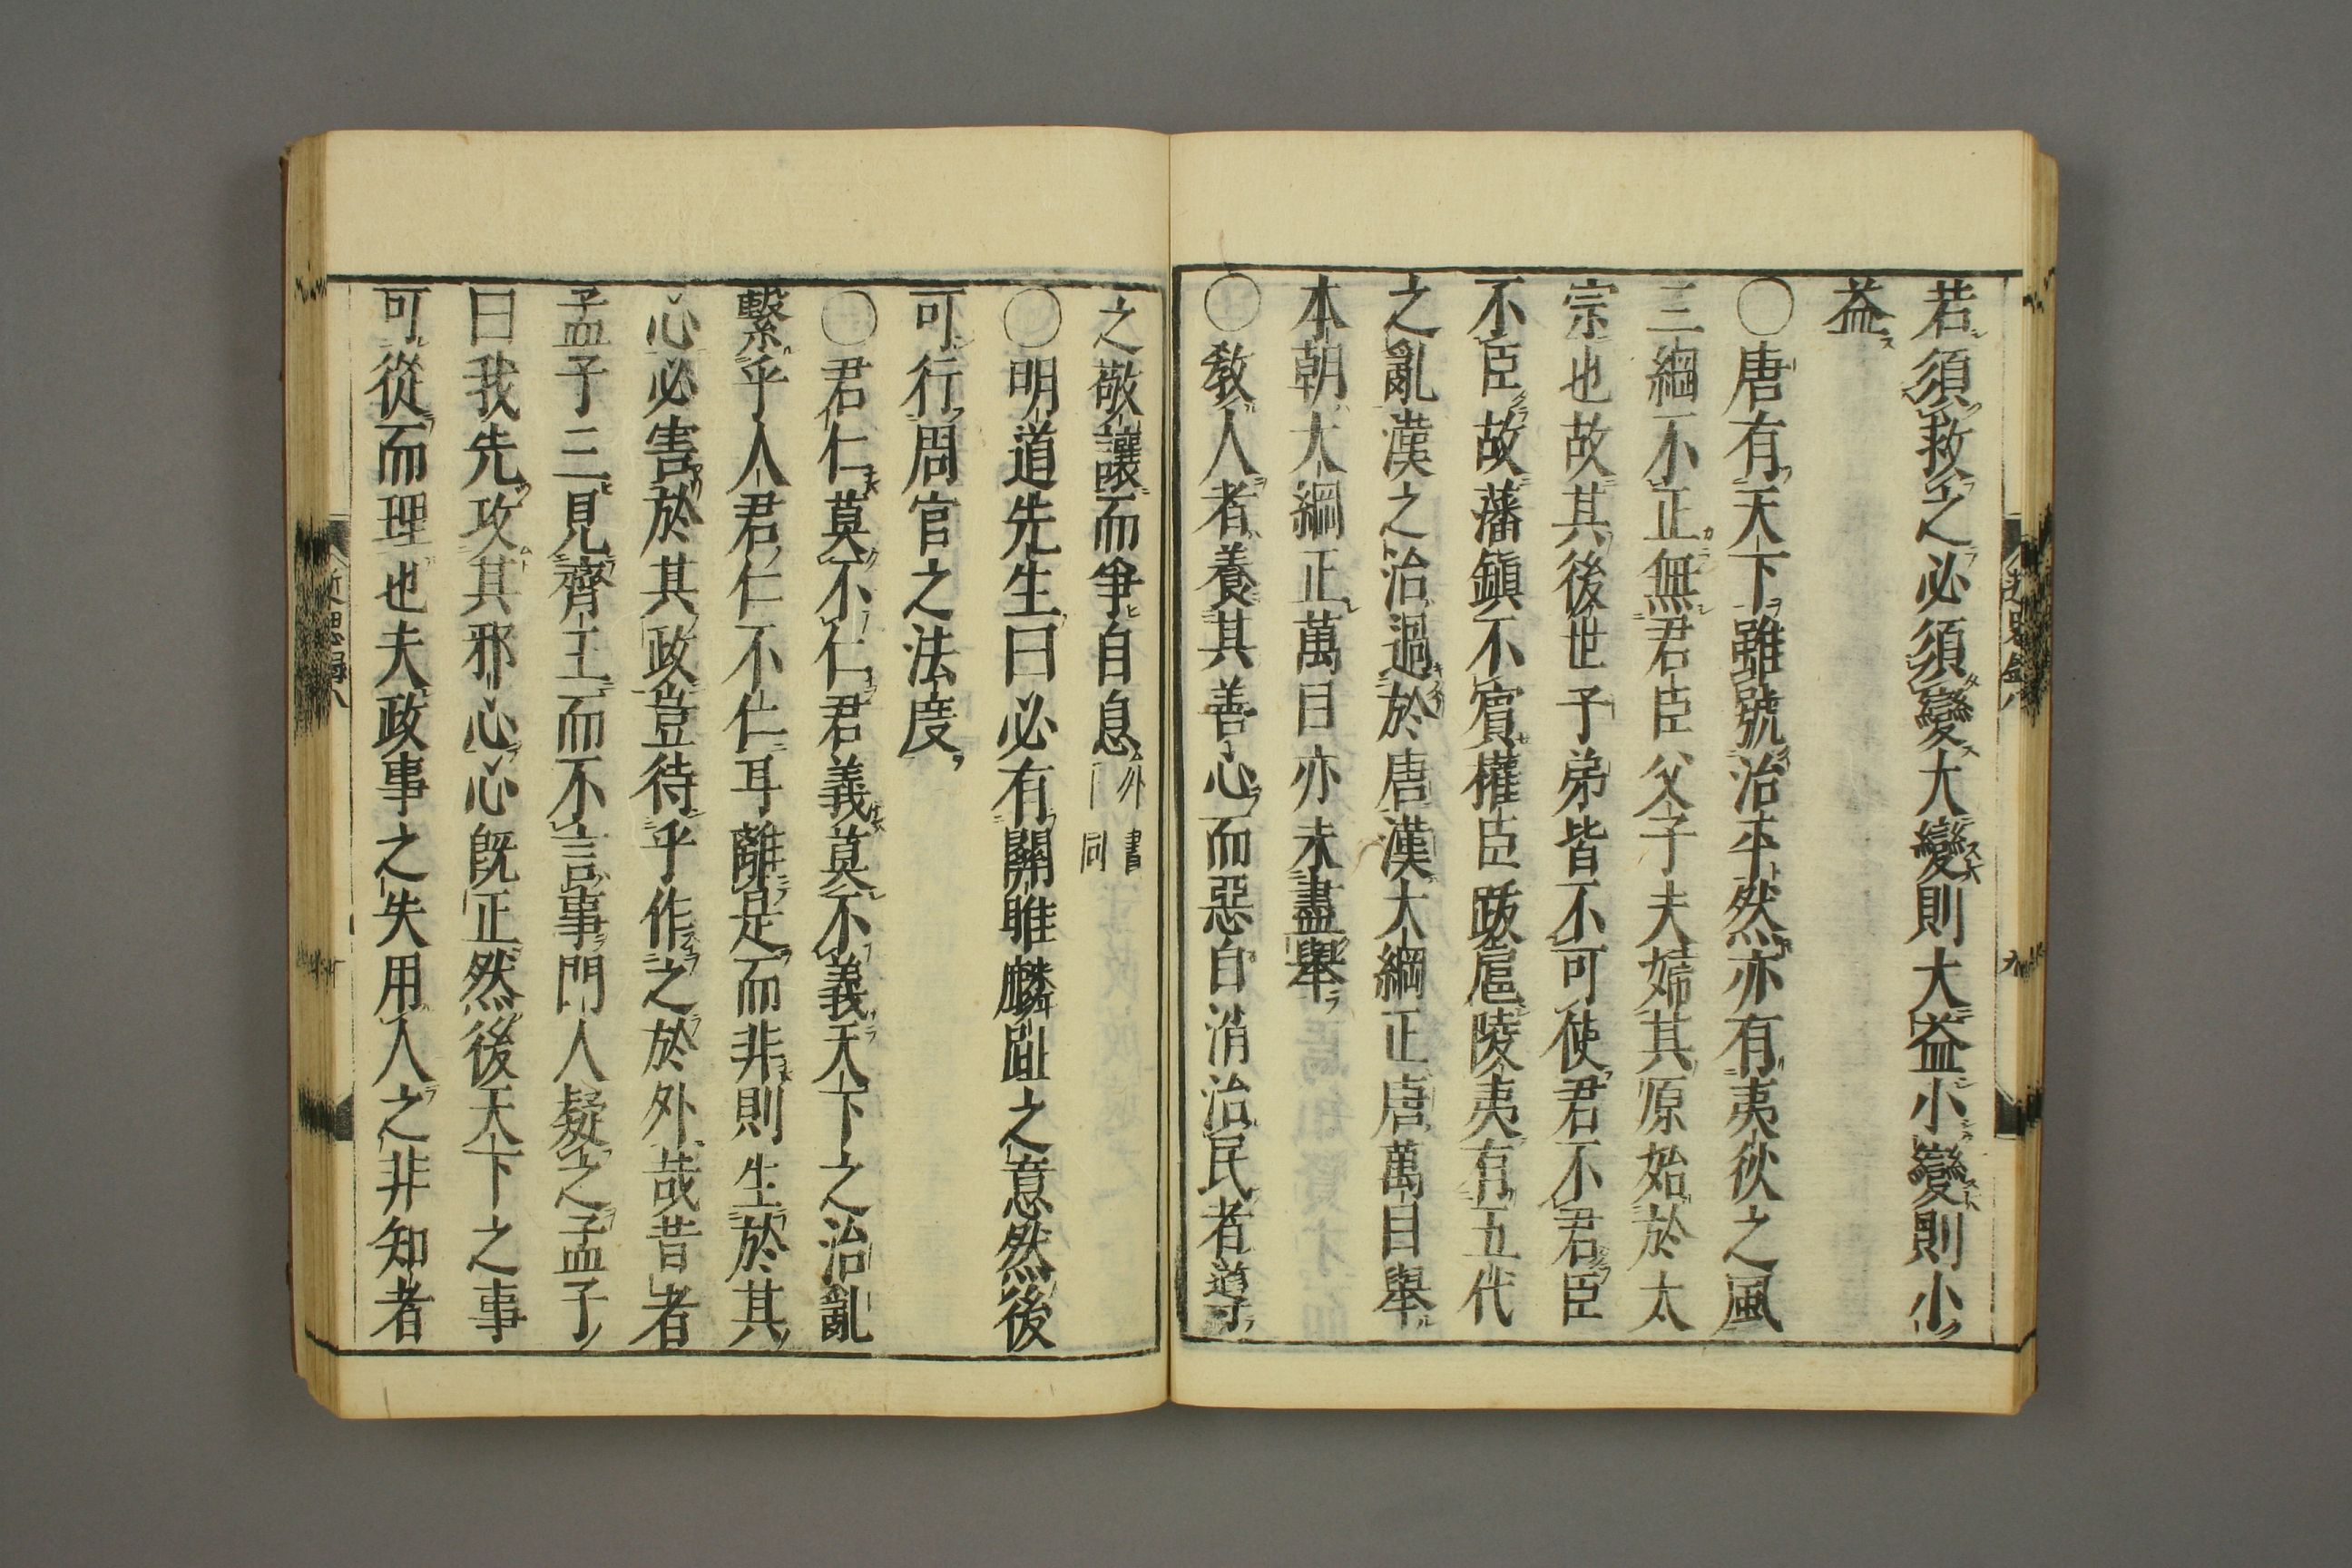 若須救之必須變大變則大益小變則小
益
〇唐有天下雖號治平然亦有夷狄之風
三綱不正無君臣父子夫婦其原始於太
宗也故其後世子弟皆不可使君不君臣
不臣故藩鎭不賓權臣跋扈陵夷有五代
之亂漢之治過於唐漢大綱正唐萬目舉
本朝大綱正萬目亦未盡舉
〇敎人者養其善心而惡自消治民者導
之敬讓而爭自息
外書
同
〇明道先生曰必有關雎麟趾之意然後
可行周官之法度
〇君仁莫不仁君義莫不義天下之治亂
繫乎人君仁不仁耳離是而非則生於其
心必害於其政豈待乎作之於外哉昔者
孟子三見齊王而不言事門人疑之孟子
曰我先攻其邪心心既正然後天下之事
可從而理也夫政事之失用人之非知者